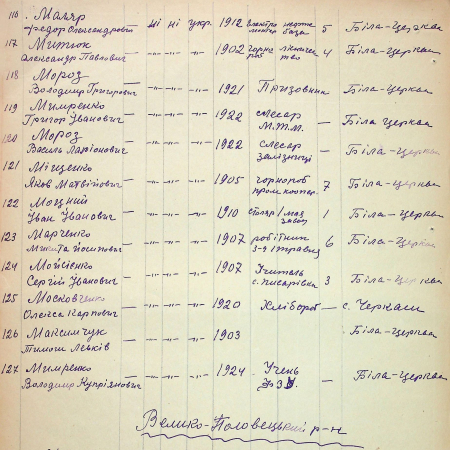 116. Маляр ні ні укр. 1912 електро монтер 5 Біла-Церква
Федор Олександрович
117 Митюк -"- -"- -"- 1902 чорно роб 4 Біла-Церква
Олександр Павлович
118 Мороз
Володимир Григорович -"- -"- -"- 1921 Призовник Біла-Церква
119 Мимренко -"- -"- -"- 1922 слесар — Біла Церква
Григор Уванович М.Т.М.
120 Мороз -"- -"- -"- 1922 слесар — Біла-Церква
Василь Ларіонович залізниці
121 Міщенко -"- -"- -"- 1905 чорнороб 7 Біла-Церква
Яков Матвійович пром.коопер.
122 Моцний -"- -"- -"- 1910 столяр 1 Біла-Церква
Уван Уванович
123 Марченко -"- -"- -"- 1907 робітник 6 Біла-Церква
Микита Йосипович 3-9 1 травня
124 Мойсієнко -"- -"- -"- 1907 Учитель 3 Біла-Церква
Сергій Уванович с. Писарівка
125 Московченко -"- -"- -"- 1920 Хлібороб — с. Черкаси
Олекса Карпович
126 Максимчук -"- -"- -"- 1903 Біла-Церква
Тимош Леьків
127 Мимренко -"- -"- -"- 1924 Учень — Біла-Церква
Володимир Купріянович ФЗУ
Велико-Половецький р-н